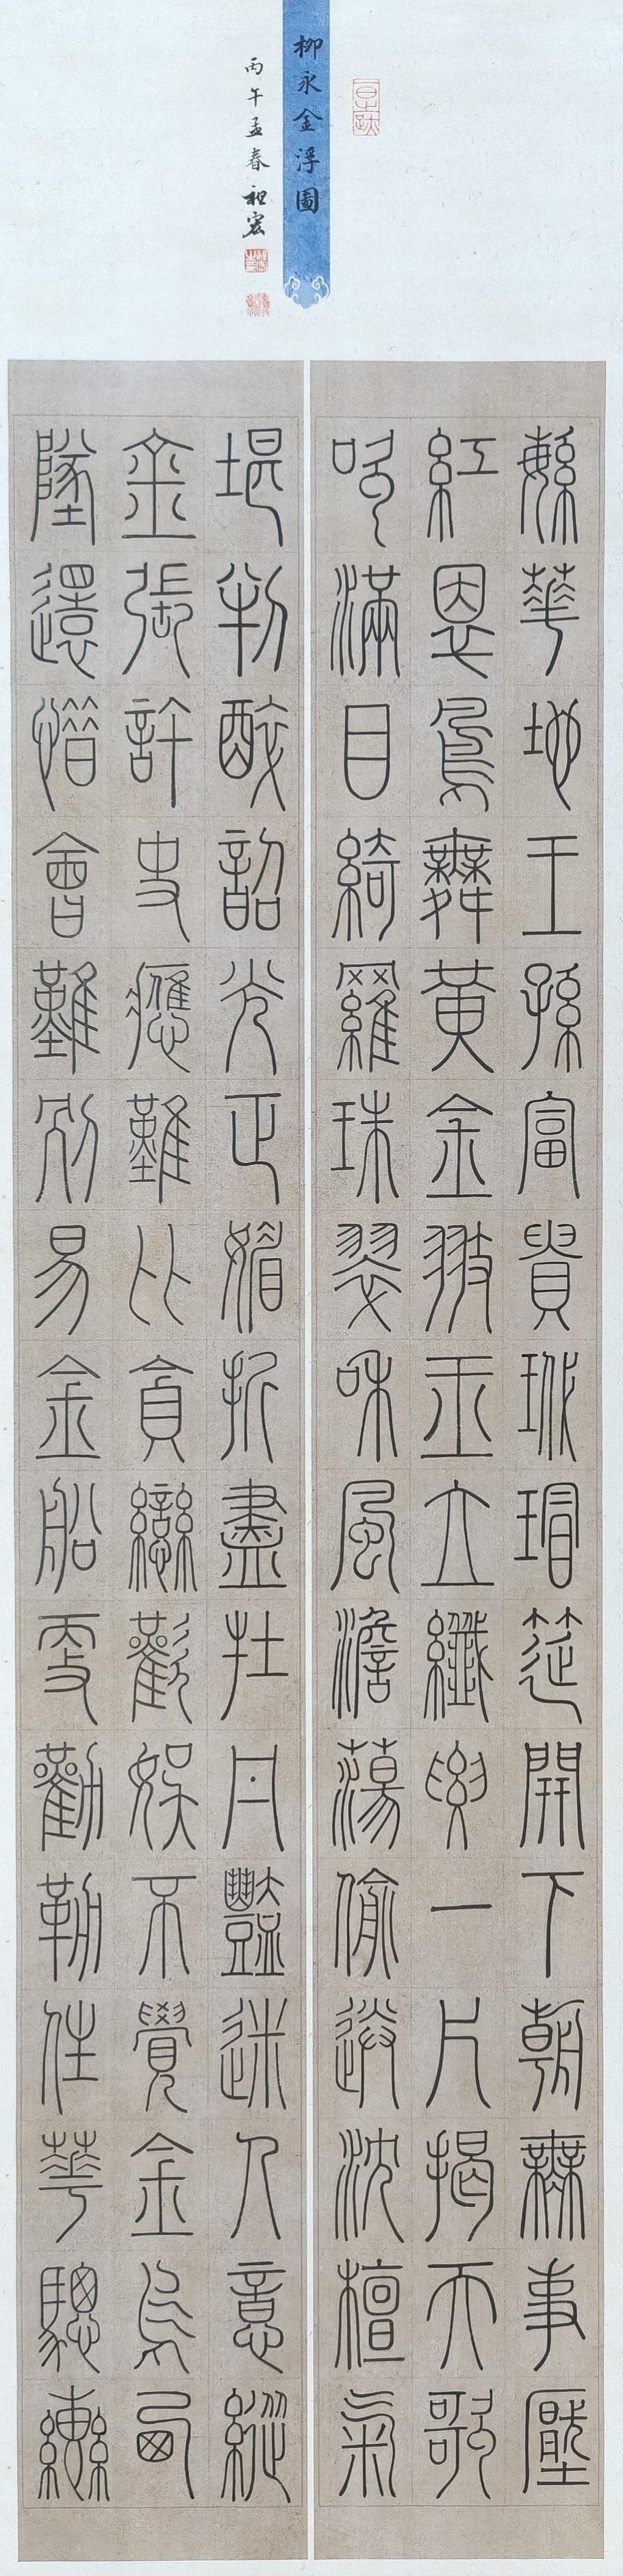 柳永金浮圖
丙午孟春
繁華地王孫富貴玳瑁筵開下朝無事壓
紅茵鳳舞黃金翅玉立纖腰一片揭天歌
吹滿目綺羅珠翠和風澹蕩偷散沈檀氣
堪判醉韶光正媚折盡牡丹豔迷人意縱
金張許史應難比貪戀歡娛不覺金烏西
墜還惜會難別易金船更勸勒住華驄轡